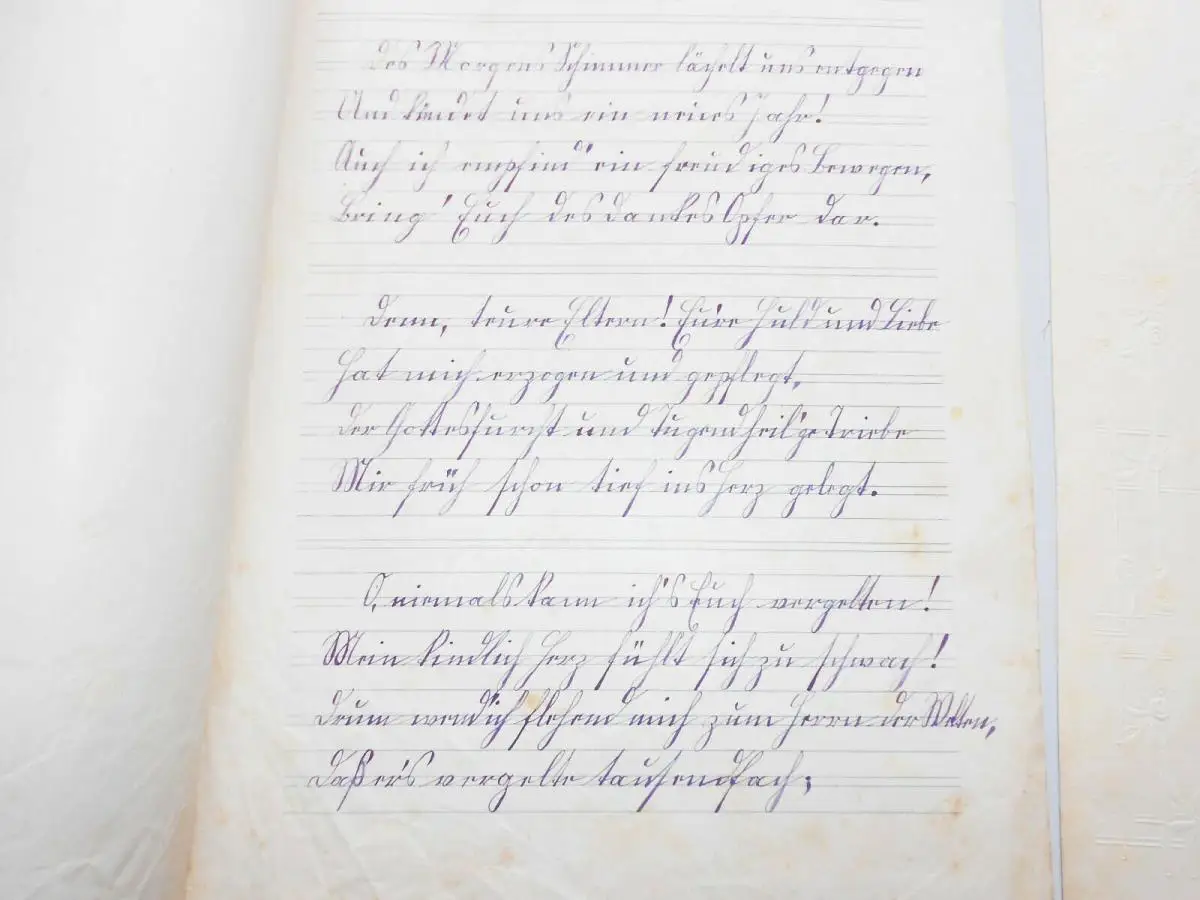 Des Morgens Schimmer lächelt uns entgegen
Und kündet uns ein neues Jahr!
Auch ich empfind' ein freudiges Bewegen,
Bring' Euch des Dankes Opfer dar.
Denn, teure Eltern! Eu're Huld und Liebe
Hat mich erzogen und gepflegt,
Der Gottesfurcht und Tugend heil'ge Triebe
Mir früh schon tief ins Herz gelegt.
O, niemals kann ich's Euch vergelten!
Mein kindlich Herz fühlt sich zu schwach!
Drum wend' ich flehend mich zum Herrn der Welten,
Daß er's vergelte tausendfach;